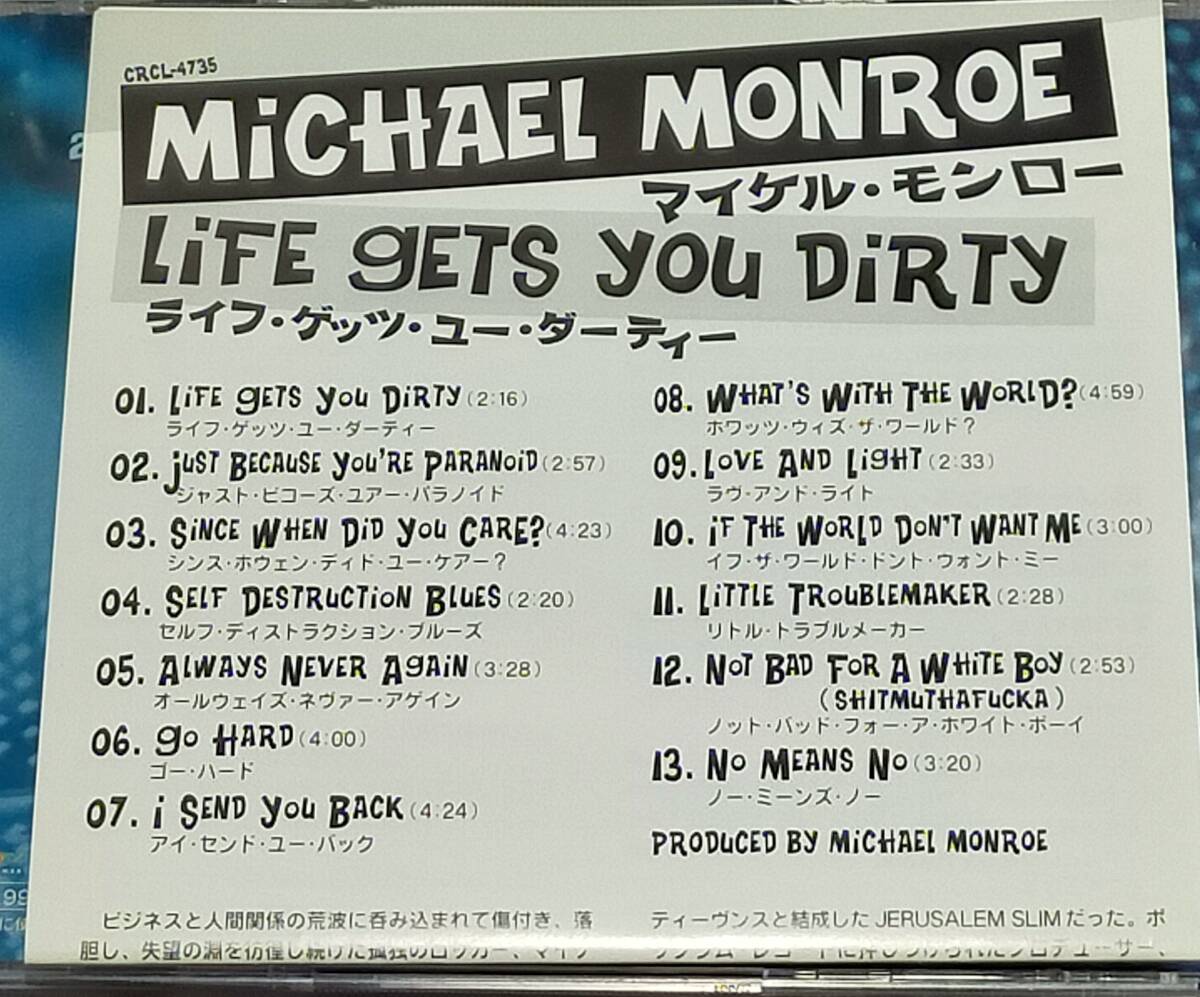 CRCL-4735
MiCHAEL MONROE
マイケル・モンロー
LiFE gETS YOU DiRTY
ライフ・ゲッツ・ユー・ダーティー
01. LiFE gETS YOU DiRTY (2:16)
ライフ・ゲッツ・ユー・ダーティー
02. jUST BECAUSE YOU'RE PARANOiD (2:57)
ジャスト・ビコーズ・ユアー・パラノイド
03. SiNCE WHEN DiD YOU CARE? (4:23)
シンス・ホウェン・ディド・ユー・ケアー?
04. SELF DESTRUCTiON BLUES (2:20)
セルフ・ディストラクション・ブルーズ
05. ALWAYS NEVER AgAiN (3:28)
オールウェイズ・ネヴァー・アゲイン
06. gO HARD (4:00)
ゴー・ハード
07. i SEND YOU BACK (4:24)
アイ・センド・ユー・バック
08. WHAT'S WiTH THE WORLD? (4:59)
ホワッツ・ウィズ・ザ・ワールド?
09. LOVE AND LigHT (2:33)
ラヴ・アンド・ライト
10. iF THE WORLD DON'T WANT ME (3:00)
イフ・ザ・ワールド・ドント・ウォント・ミー
11. LiTTLE TROUBLEMAKER (2:28)
リトル・トラブルメーカー
12. NOT BAD FOR A WHiTE BOY (2:53)
(SHITMUTHAFUCKA)
ノット・バッド・フォー・ア・ホワイト・ボーイ
13. NO MEANS NO (3:20)
ノー・ミーンズ・ノー
PRODUCED BY MiCHAEL MONROE
ビジネスと人間関係の荒波に呑み込まれて傷付き、落
胆し、失望の淵を彷徨し続けた孤独のロッカー、マイケ
ティーヴンスと結成した JERUSALEM SLIM だった。ポ
リグラム・レコードに押しつけられたプロデューサー、